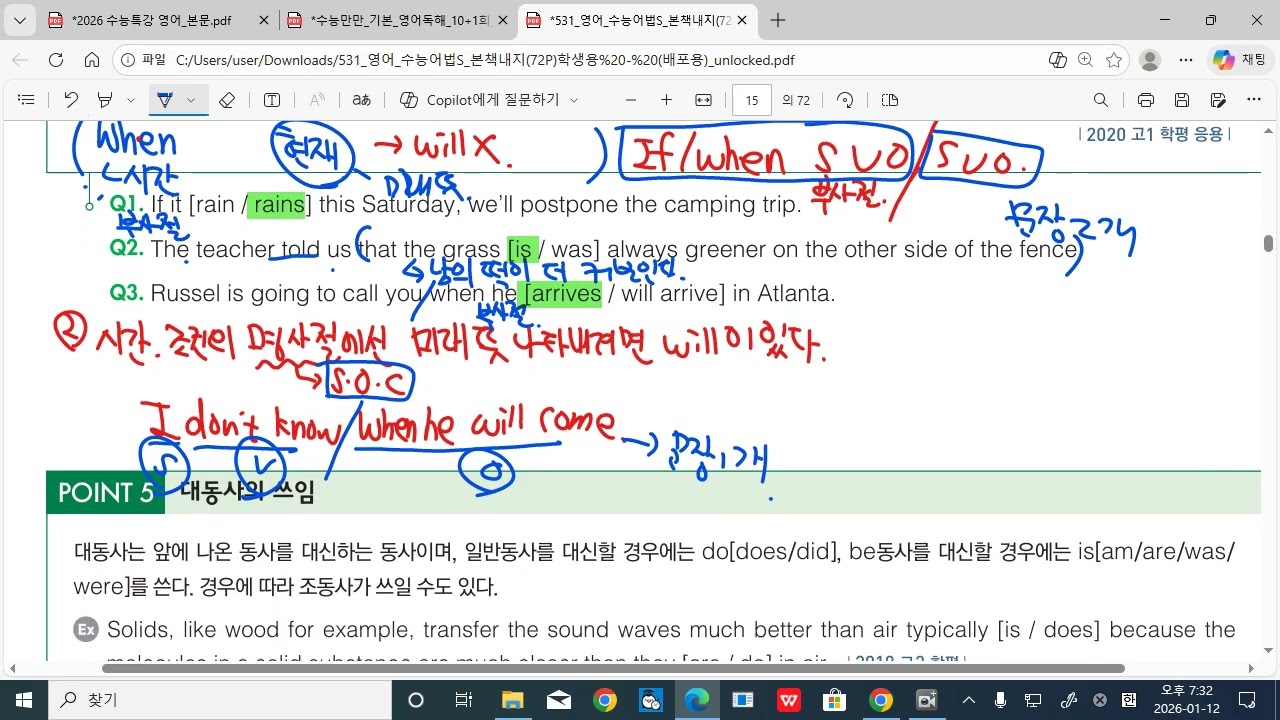 *2026 수능특강 영어_본문.pdf
*수능만만_기본_영어독해_10+1회_
*531_영어_수능어법S_본책내지(72
파일 C:/Users/user/Downloads/531_영어_수능어법S_본책내지(72P)학생용%20-%20(배포용)_unlocked.pdf
재팅
Copilot에게 질문하기
15 의 72
When 현재 → will X. If/when S V O / S V O.
| 2020 고1 학평 응용 |
시간 미래 부사절
Q1. If it [rain / rains] this Saturday, we'll postpone the camping trip.
부사절 문장 2개
Q2. The teacher told us that the grass [is / was] always greener on the other side of the fence.
남의 떡이 더 커보인다.
Q3. Russel is going to call you when he [arrives / will arrive] in Atlanta.
부사절.
② 시간. 조건의 명사절에선 미래를 나타내려면 will이 있다.
S.O.C
I don't know when he will come → 문장 1개.
S V O
POINT 5 대동사의 쓰임
대동사는 앞에 나온 동사를 대신하는 동사이며, 일반동사를 대신할 경우에는 do[does/did], be동사를 대신할 경우에는 is[am/are/was/
were]를 쓴다. 경우에 따라 조동사가 쓰일 수도 있다.
Ex Solids, like wood for example, transfer the sound waves much better than air typically [is / does] because the
molecules in a solid substance are much closer than they [are / do] in air. | 2018 고2 학평 |
찾기
한
오후 7:32
2026-01-12